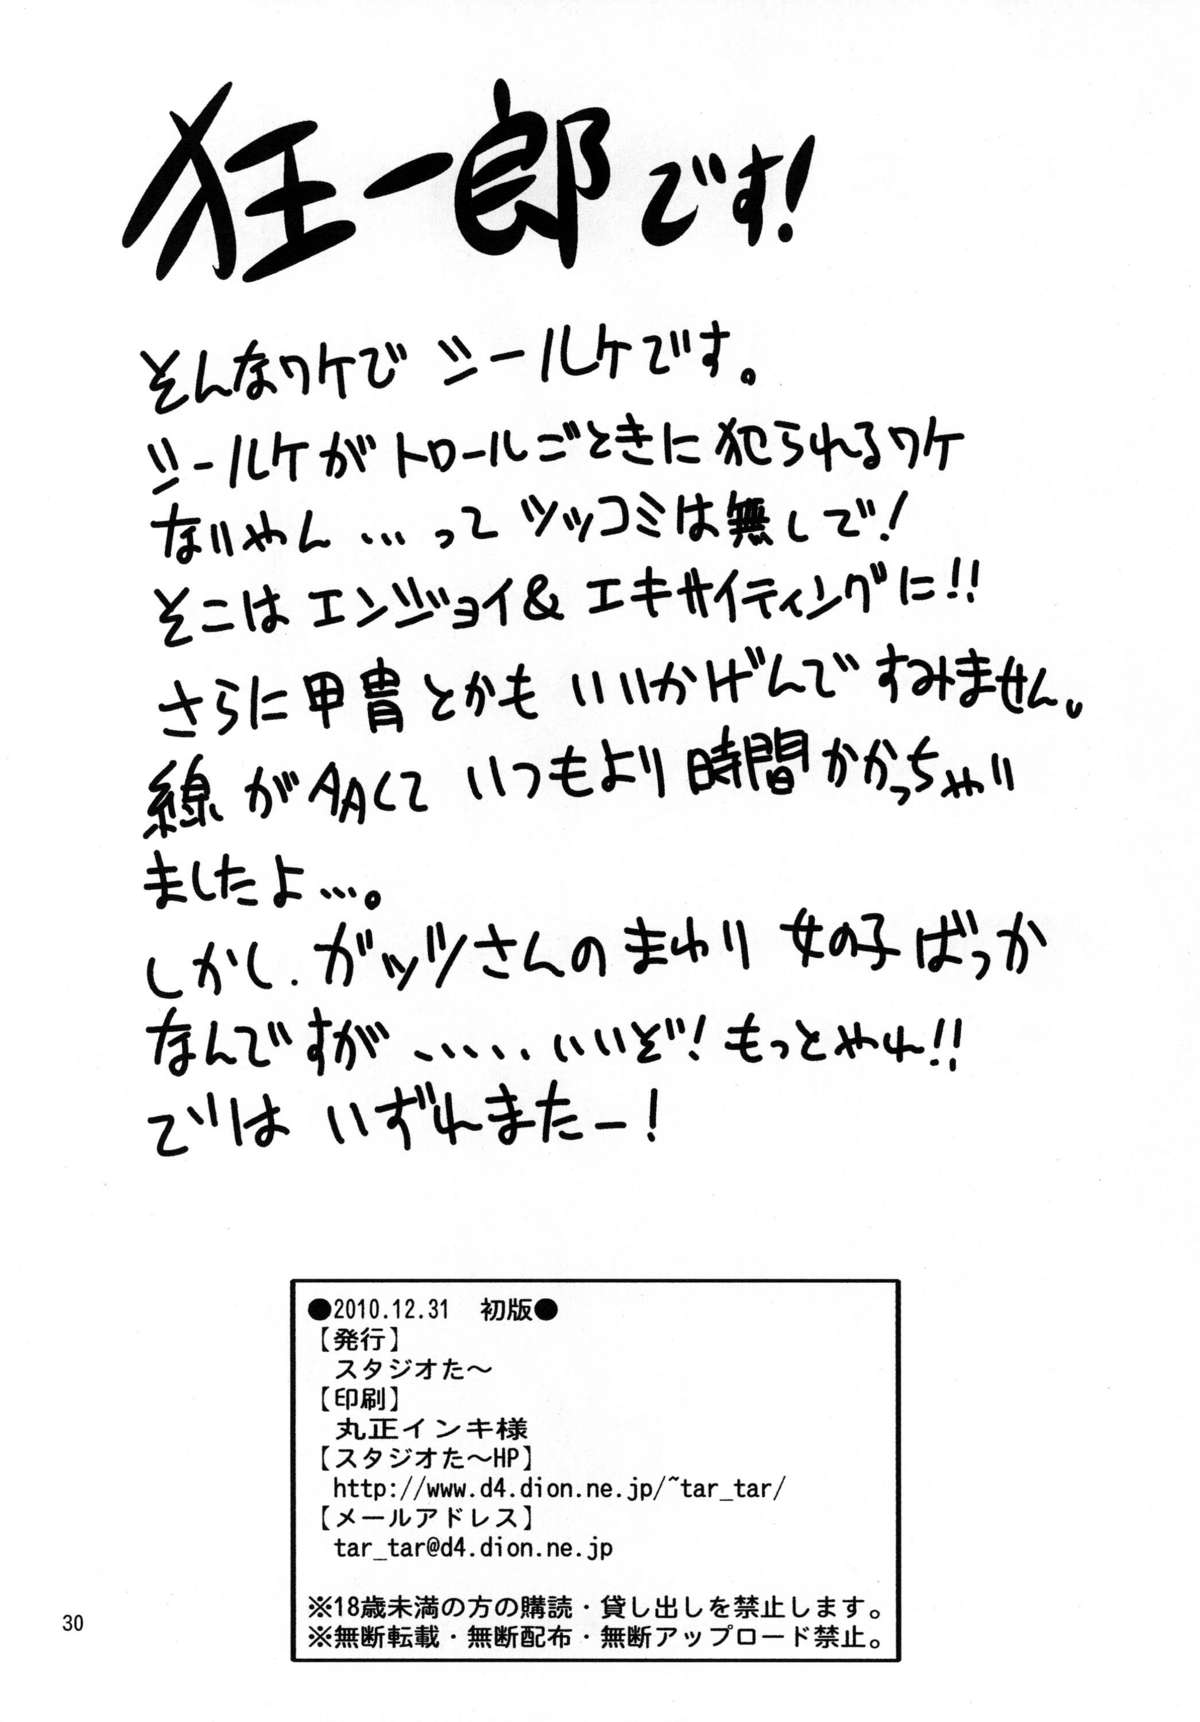 狂一郎です!
そんなワケで シールケです。
シールケがトロールごときに犯られるワケ
ないやん…って ツッコミは無しで!
そこは エンジョイ& エキサイティングに!!
さらに 甲冑とかも いいかげんで すみません。
線が 多くて いつもより 時間かかっちゃい
ましたよ…。
しかし. ガッツさんの まわり 女の子 ばっか
なんですが ..... いいぞ! もっとやれ!!
では いずれまたー!
●2010.12.31 初版●
【発行】
スタジオた〜
【印刷】
丸正インキ様
【スタジオた〜HP】
http://www.d4.dion.ne.jp/~tar_tar/
【メールアドレス】
tar_tar@d4.dion.ne.jp
※18歳未満の方の購読・貸し出しを禁止します。
※無断転載・無断配布・無断アップロード禁止。
30